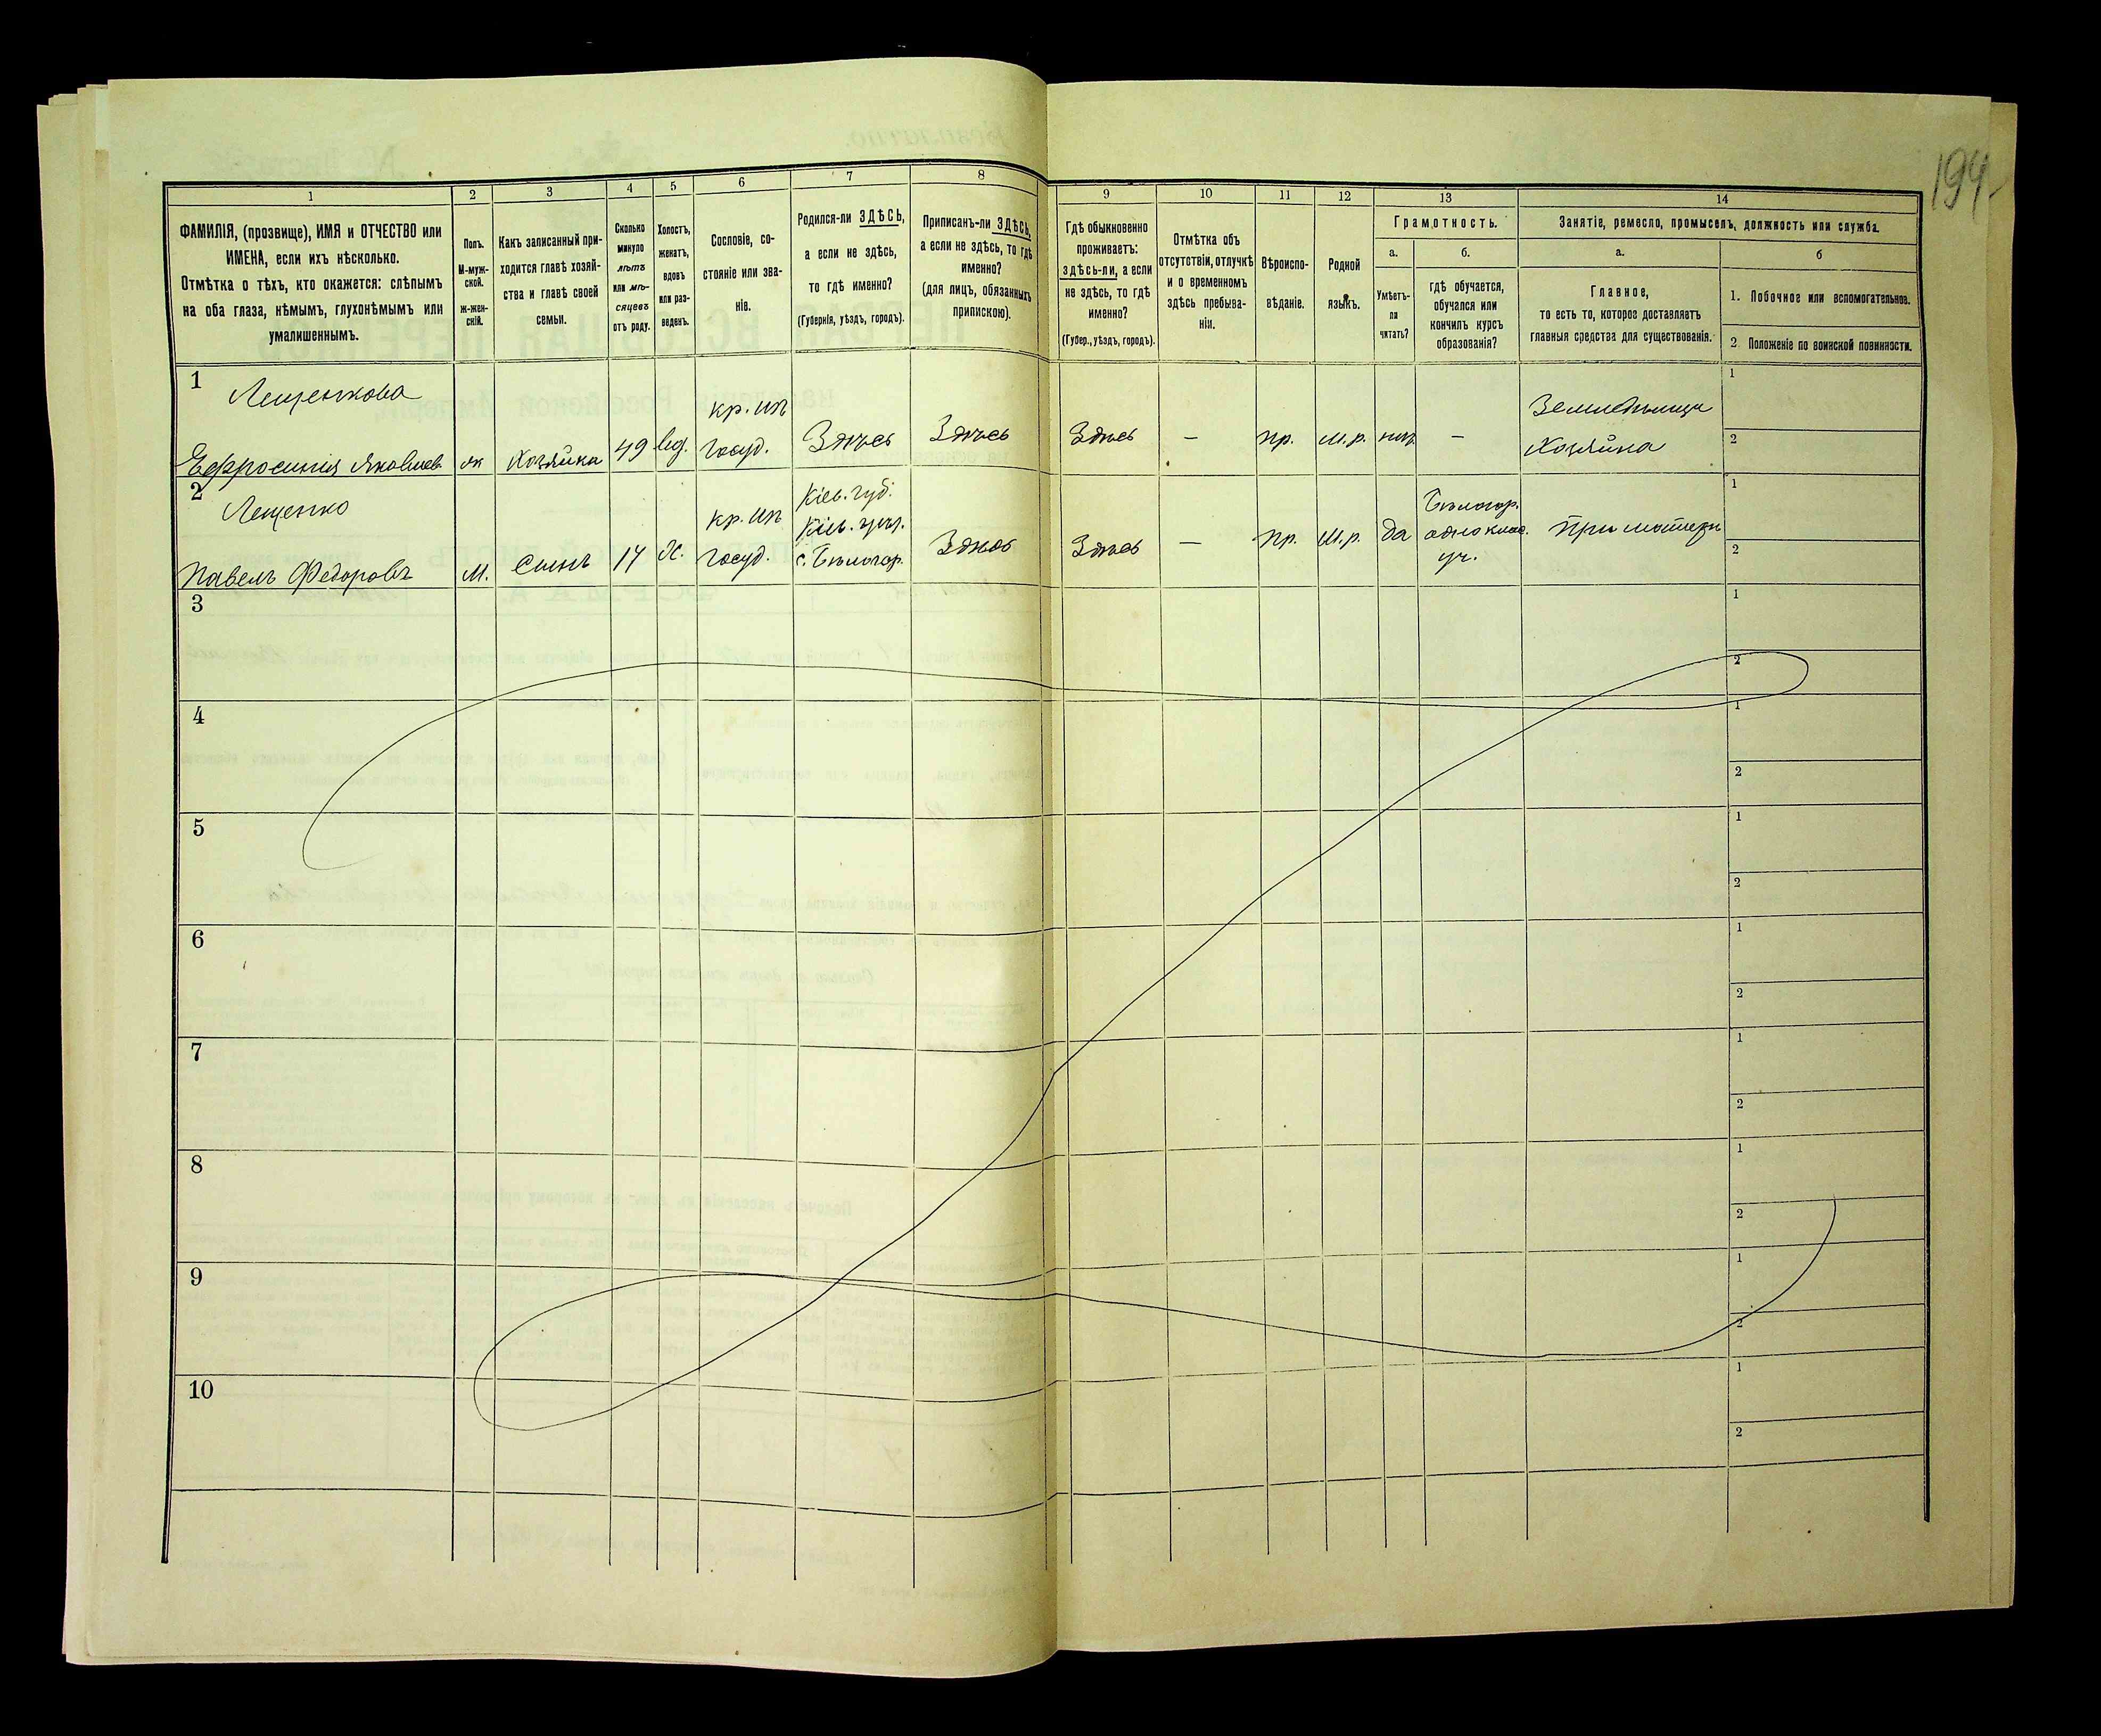 194
1
2
3
4
5
6
7
8
9
10
11
12
13
14
ФАМИЛІЯ, (прозвище), ИМЯ и ОТЧЕСТВО или
ИМЕНА, если ихъ нѣсколько.
Отмѣтка о тѣхъ, кто окажется: слѣпымъ
на оба глаза, нѣмымъ, глухонѣмымъ или
умалишеннымъ.
Полъ.
М-муж-
ской.
ж-жен-
скій.
Какъ записанный при-
ходится главѣ хозяй-
ства и главѣ своей
семьи.
Сколько
минуло
лѣтъ
или мѣ-
сяцевъ
отъ роду.
Холостъ,
женатъ,
вдовъ
или раз-
веденъ.
Сословіе, со-
стояніе или зва-
ніе.
Родился-ли ЗДѢСЬ,
а если не здѣсь,
то гдѣ именно?
(Губернія, уѣздъ, городъ).
Приписанъ-ли ЗДѢСЬ,
а если не здѣсь, то гдѣ
именно?
(для лицъ, обязанныхъ
припискою).
Гдѣ обыкновенно
проживаетъ:
здѣсь-ли, а если
не здѣсь, то гдѣ
именно?
(Губер., уѣздъ, городъ).
Отмѣтка объ
отсутствіи, отлучкѣ
и о временномъ
здѣсь пребыва-
ніи.
Вѣроиспо-
вѣданіе.
Родной
языкъ.
Грамотность.
а.
Умѣетъ-
ли
читать?
б.
гдѣ обучается,
обучался или
кончилъ курсъ
образованія?
Занятіе, ремесло, промыселъ, должность или служба.
а.
Главное,
то есть то, которое доставляетъ
главныя средства для существованія.
б
1. Побочное или вспомогательное.
2 Положеніе по воинской повинности.
1
Лещенкова
Ефросинія Яковлев.
ж
Хозяйка
49
вд.
кр. изъ
госуд.
Здѣсь
Здѣсь
Здѣсь
—
пр.
м.р.
нѣтъ
—
Земледѣлица
Хозяйка
1
2
2
Лещенко
Павелъ Федоровъ
М.
Сынъ
14
Х.
кр. изъ
госуд.
Кіев. губ.
Кіев. уѣз.
с. Бѣлогор.
Здѣсь
Здѣсь
—
пр.
М.р.
да
Бѣлогор.
одноклас.
уч.
При матери
1
2
3
1
2
4
1
2
5
1
2
6
1
2
7
1
2
8
1
2
9
1
2
10
1
2